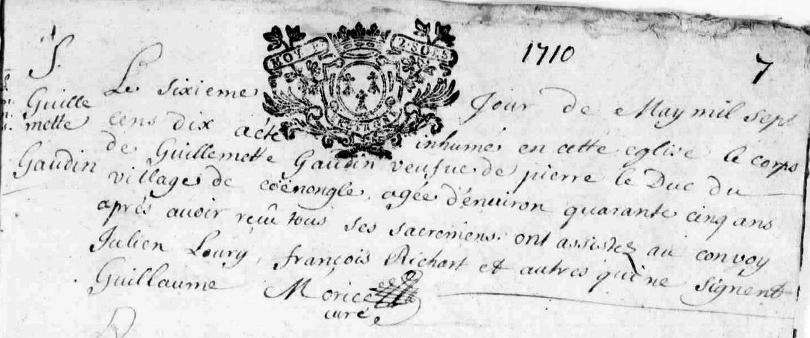 1710
7
S.
Guille
mette
Gaudin
MOY E
ESCVES
Le sixieme Jour de May mil sept
cens dix a été inhumé en cette eglise le corps
de Guillemette Gaudin veufue de pierre le Duc du
village de coënongle, agée d'environ quarante cinq ans
aprés auoir reçû tous ses sacremens. ont assistez au convoy
Julien Loury, françois Richart et autres qui ne signent
Guillaume Morice
curé